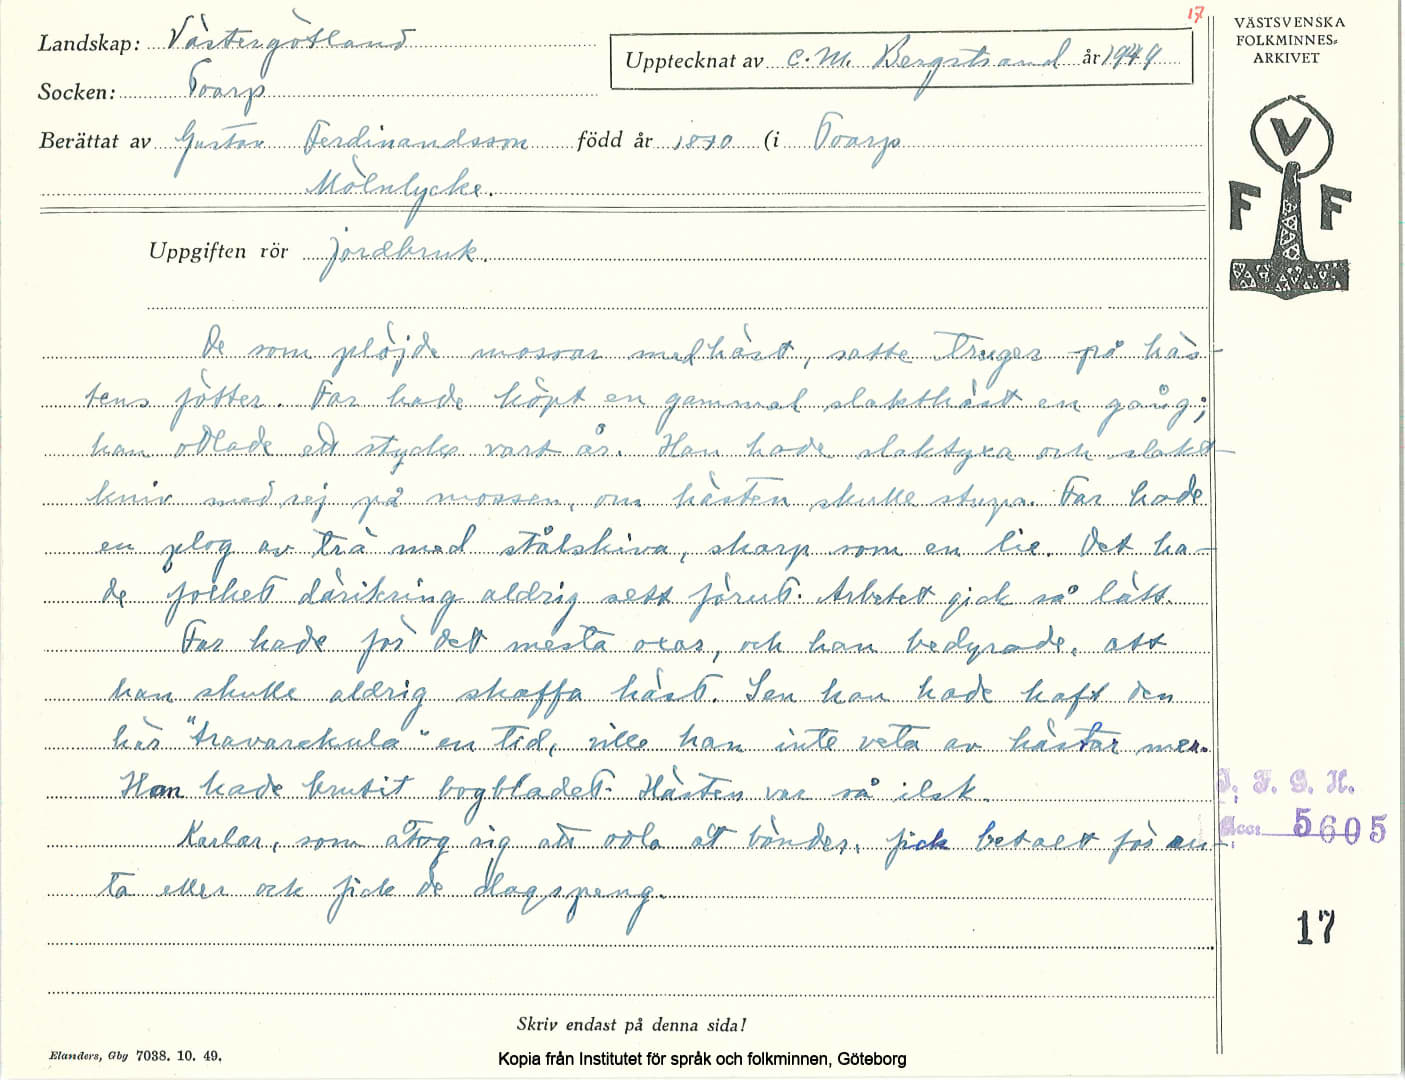 17
VÄSTSVENSKA
FOLKMINNES-
ARKIVET
Landskap: Västergötland
Upptecknat av C. M. Bergstrand år 1949
Socken: Toarp
Berättat av Gustav Ferdinandsson född år 1870 (i Toarp
Mölnlycke.
V
F F
Uppgiften rör jordbruk.
De som plöjde mossar med häst, satte truger på häs-
tens fötter. Far hade köpt en gammal slakthäst en gång;
han odlade ett stycke vart år. Han hade slaktyxa och slakt-
kniv med sej på mossen, om hästen skulle stupa. Far hade
en plog av trä med stålskiva, skarp som en lie. Det ha-
de folket däritkring aldrig sett förut. Arbetet gick så lätt.
Far hade för det mesta oxar, och han bedyrade, att
han skulle aldrig skaffa häst. Sen han hade haft den
här "travarekula" en tid, ville han inte veta av hästar mer.
Han hade brutit bogbladet. Hästen var så ilsk.
Karlar, som åtog sig att odla åt bönder, fick betalt för
ta eller ock fick de dagspeng.
I. F. G. H.
Acc: 5605
17
Skriv endast på denna sida!
Elanders, Gbg 7038. 10. 49.
Kopia från Institutet för språk och folkminnen, Göteborg